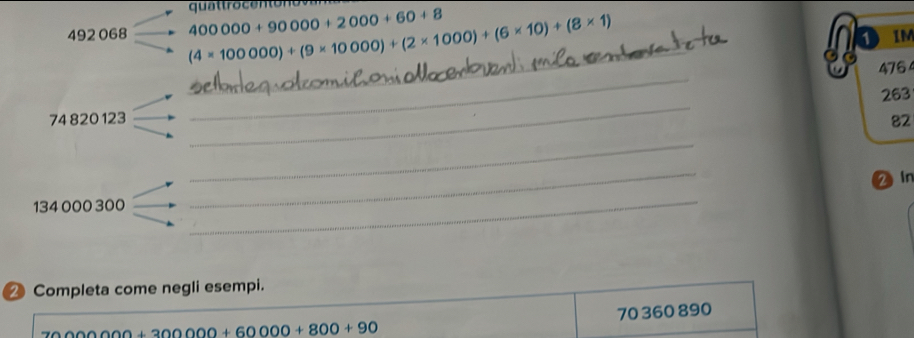 492 068
400 000 + 90 000 + 2 000 + 60 + 8
(4 × 100 000) + (9 × 10 000) + (2 × 1 000) + (6 × 10) + (8 × 1)
74 820 123
134 000 300
2 Completa come negli esempi.
70 000 000 + 300 000 + 60 000 + 800 + 90
70 360 890
1 IM
4764
263
82
2 In